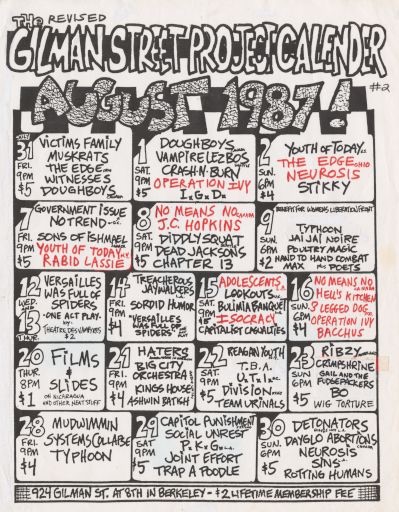 THE REVISED
GILMAN STREET PROJECT CALENDER
AUGUST 1987!
#2
JULY 31
FRI.
9PM
$5
VICTIMS FAMILY
MUSKRATS
THE EDGE OHIO
WITNESSES
DOUGHBOYS CANADA
1
SAT.
9PM
$5
DOUGHBOYS CANADA
VAMPIRE LEZBOS
CRASH·N·BURN
OPERATION IVY
I.x G.x D.x
2
SUN.
6PM
$4
YOUTH OF TODAY N.Y.
THE EDGE OHIO
NEUROSIS
STIKKY
7
FRI.
9PM
$5
GOVERNMENT ISSUE
NO TREND D.C.
SONS OF ISHMAEL
YOUTH OF TODAY N.Y.
RABID LASSIE
8
SAT.
9PM
$5
NO MEANS NO CANADA
J.C. HOPKINS
DIDDLY SQUAT
DEAD JACKSONS
CHAPTER 13
9
SUN.
6PM
$2
BENEFIT FOR WOMENS LIBERATION FRONT
TYPHOON
JAI JAI NOIRE
POULTRY MAGIC
HAND TO HAND COMBAT
MAX POETS
12
WED.
13
THUR.
VERSAILLES
WAS FULL OF
SPIDERS
-ONE ACT PLAY-
by:
THEATRE DES VAMPIRES
$2
14
FRI.
9PM
$4
TREACHEROUS
JAYWALKERS
SORDID HUMOR
"VERSAILLES
WAS FULL OF
SPIDERS"
15
SAT.
9PM
$5
ADOLESCENTS
LOOKOUTS
BULIMIA BANQUET
ISOCRACY
CAPITALIST CASUALTIES
16
SUN.
6PM
$4
NO MEANS NO CANADA
HELL'S KITCHEN
3 LEGGED DOG
OPERATION IVY
BACCHUS
20
THUR
8PM
$1
FILMS
&
SLIDES
ON NICARAGUA
AND OTHER NEAT STUFF
21
FRI.
9PM
$4
HATERS
BIG CITY
ORCHESTRA
KINGS HOUSE
ASHWIN BATISH
22
SAT.
9PM
$5
REAGAN YOUTH
T.B.A.
DIVISION
TEAM URINALS
23
SUN.
6PM
$4
RIBZY
CRIMPSHRINE
GAIL AND THE
FUDGEPACKERS
BO
WIG TORTURE
28
FRI.
9PM
$4
MUDWIMMIN
SYSTEMS COLLAPSE
TYPHOON
29
SAT.
9PM
$5
CAPITOL PUNISHMENT
SOCIAL UNREST
F.x K.x G.x L.A.
JOINT EFFORT
TRAP A POODLE
30
SUN.
6PM
$5
DETONATORS
DAYGLO ABORTIONS
NEUROSIS
SINS
ROTTING HUMANS
924 GILMAN ST. AT 8TH IN BERKELEY - $2 LIFETIME MEMBERSHIP FEE